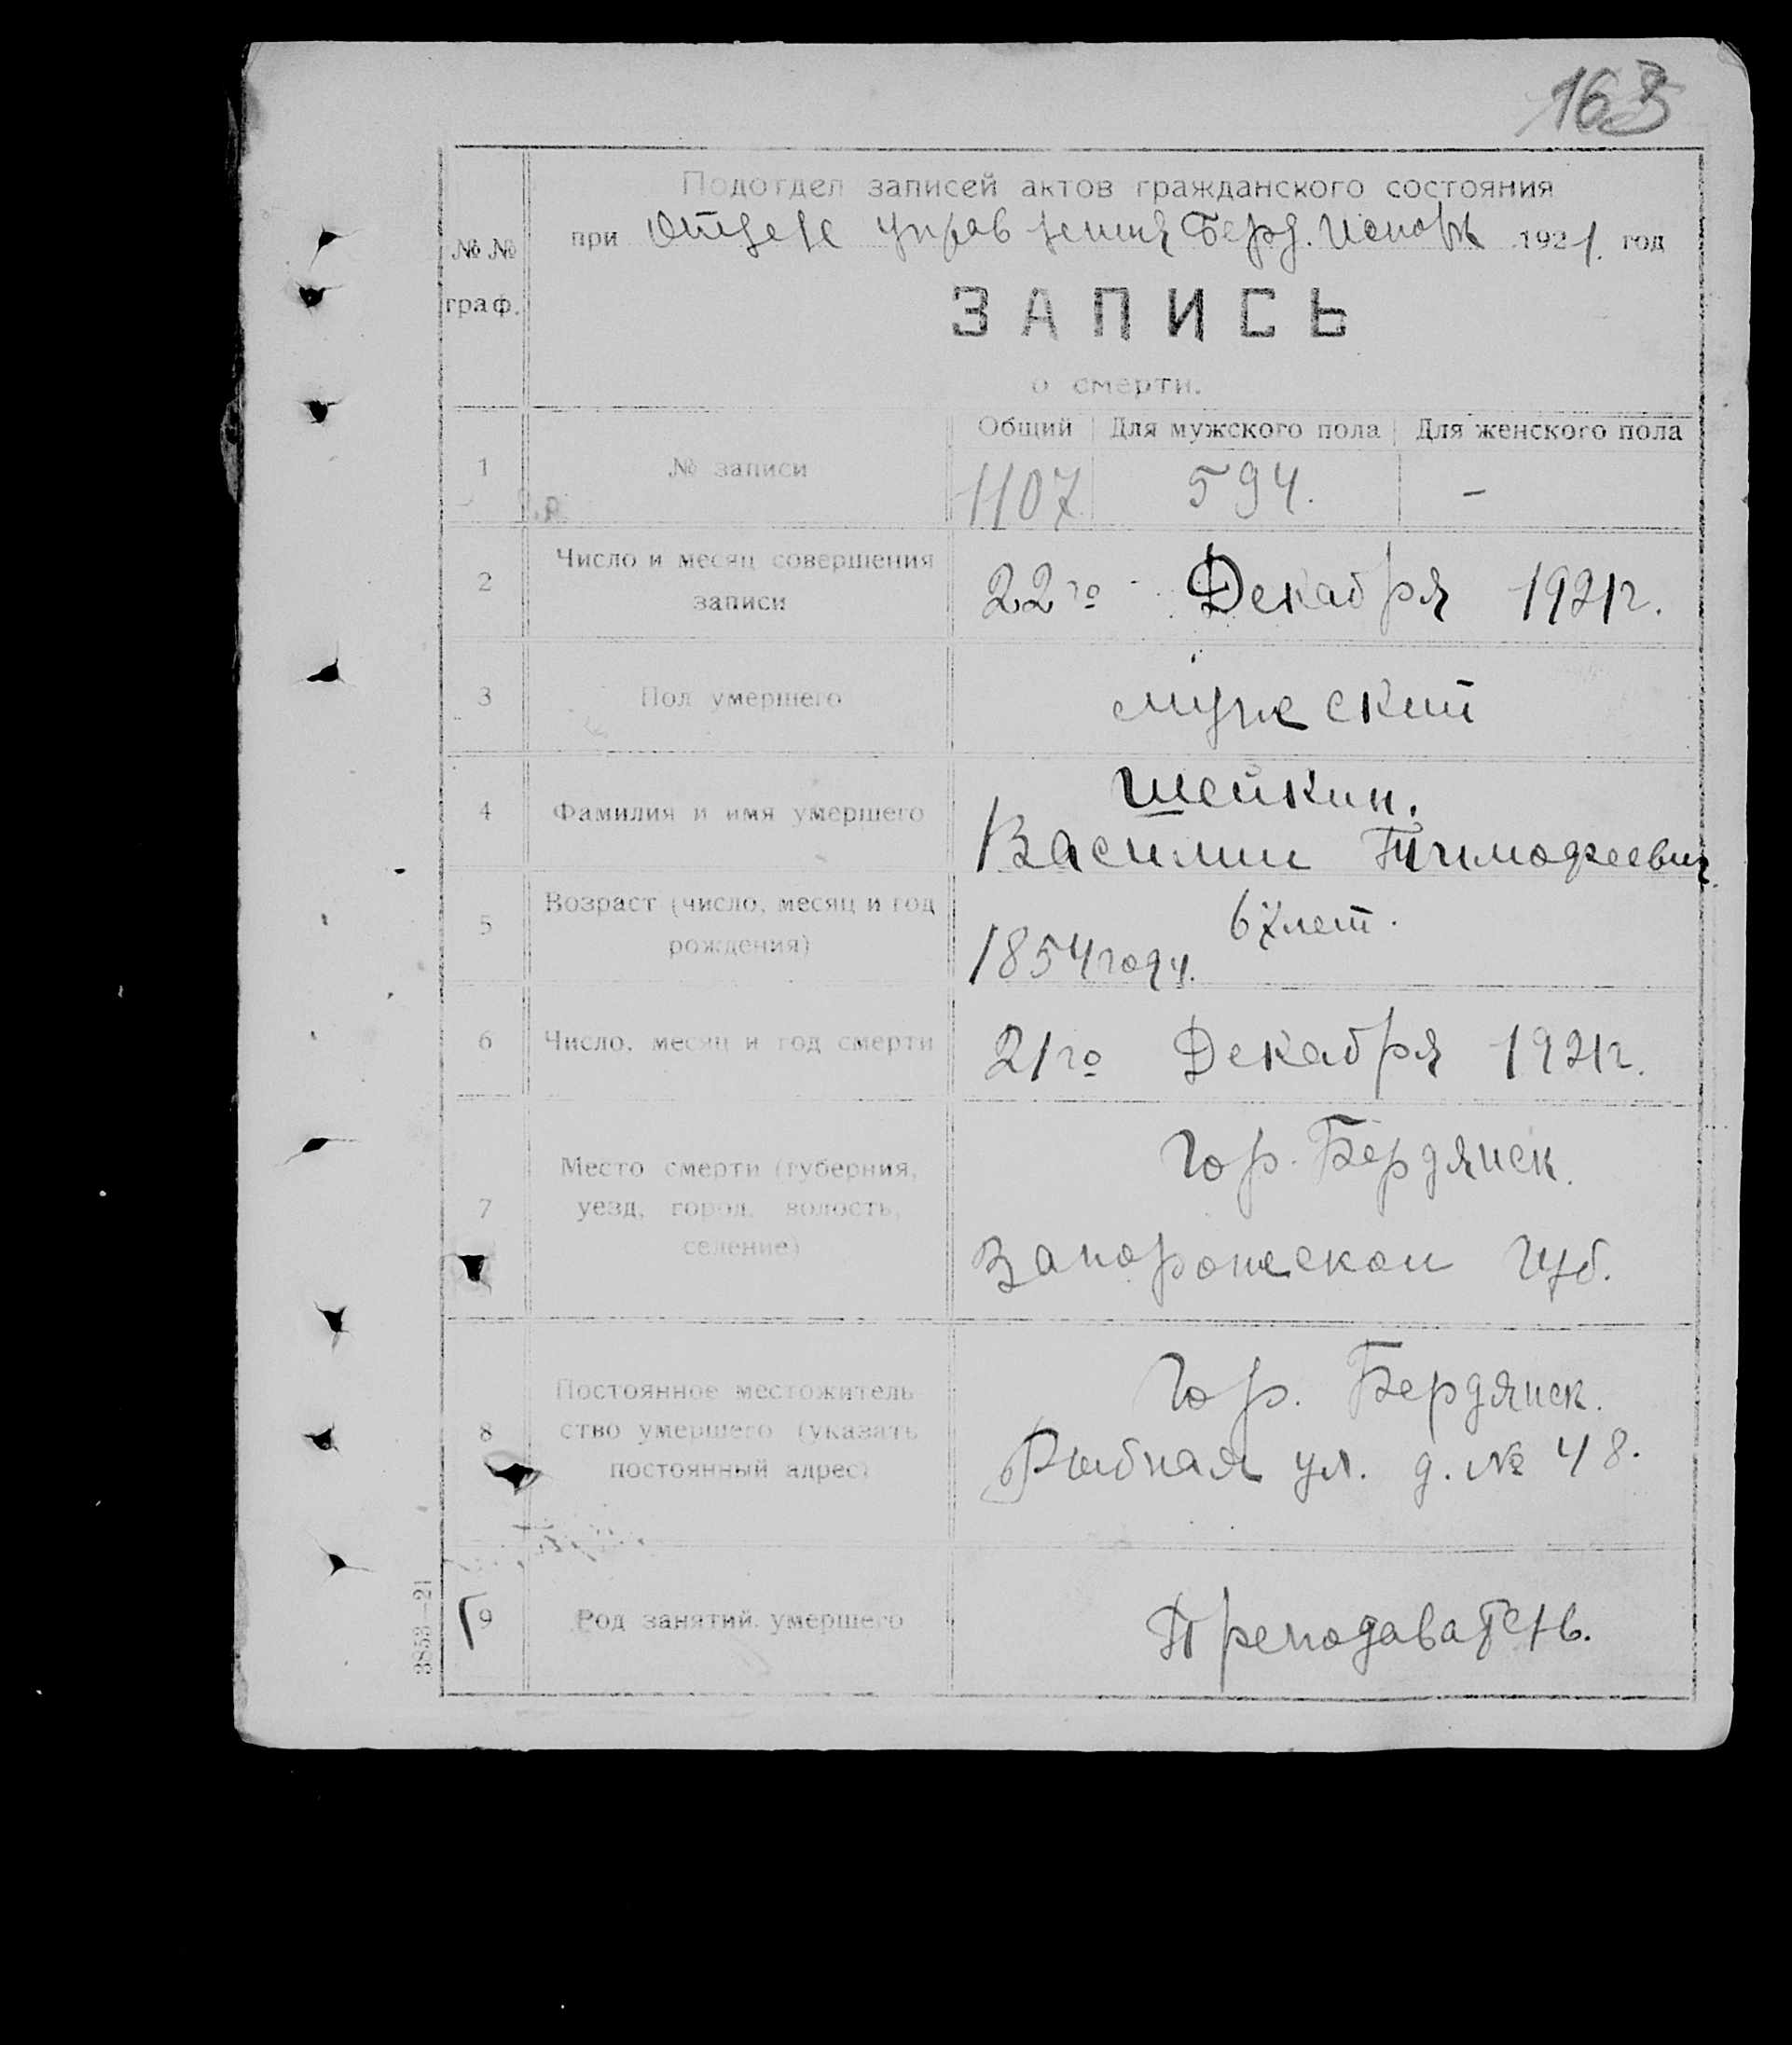 163
Подотдел записей актов гражданского состояния
при Отделе управления Берд. Исполк 1921. год
№ № граф.
ЗАПИСЬ
о смерти.
Общий Для мужского пола Для женского пола
1 № записи 1107 594. -
2 Число и месяц совершения
записи
22го Декабря 1921г.
3 Пол умершего мужский
4 Фамилия и имя умершего
Шейкин.
Василий Тимофеевич
5 Возраст (число, месяц и год
рождения)
67 лет.
1854 году.
6 Число, месяц и год смерти 21го Декабря 1921г.
7 Место смерти (губерния,
уезд, город, волость,
селение)
Гор. Бердянск.
Запорожской Губ.
8 Постоянное местожитель
ство умершего (указать
постоянный адрес)
Гор. Бердянск.
Рыбная ул. д. № 48.
9 Род занятий умершего Преподаватель.
3853—21